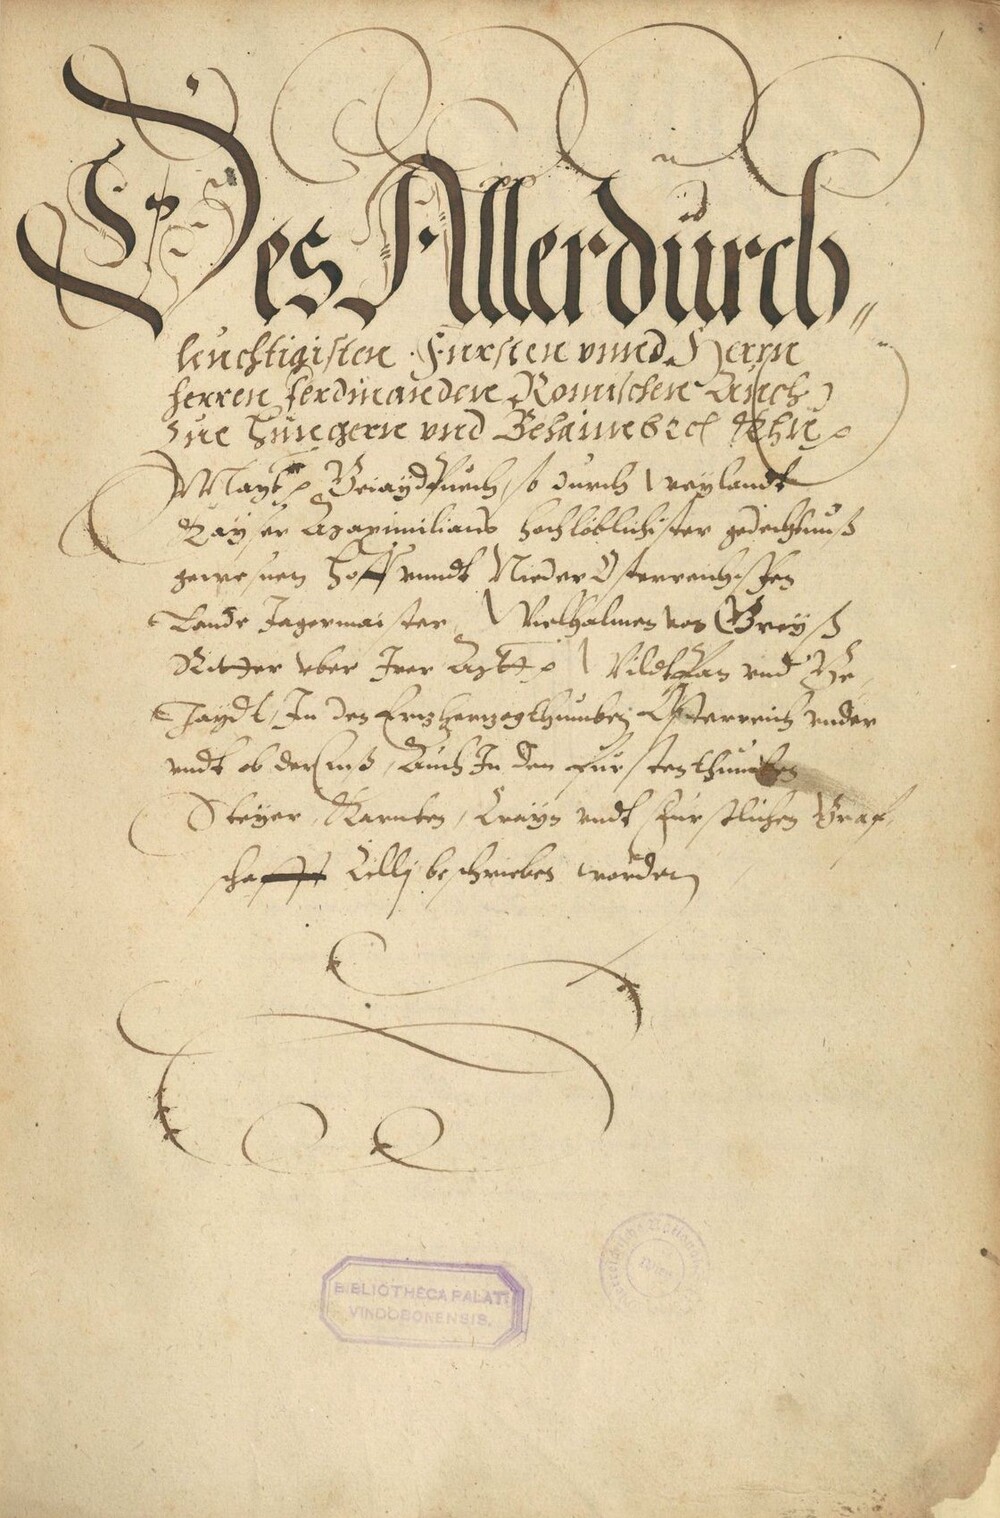 Des Allerdurch„
leuchtigisten Fursten vnnd Herrn
herren Ferdinanden Romischen Auch
zue Hungern vnd Behaimb etc Khü
Mayt Geiaydpuech, so durch Weylandt
Kayser Maximilians hochlöblichister gedechtnuß
gewesnen Hoff vnndt Nieder Osterreichischen
Lande Jagermaister, Wielhalmen von Greyß
Ritter vber Irer Mtt Wildtpan vnd Ge,
Jaydt, In den Erzherzogthumben Össterreich vnder
vndt ob der Enß, Auch In den Fürstenthumben
Steyer, Karnten, Crayn vndt Fürstlichen Graf,
schafft Cilly beschrieben worden
BIBLIOTHECA PALAT:
VINDOBONENSIS.